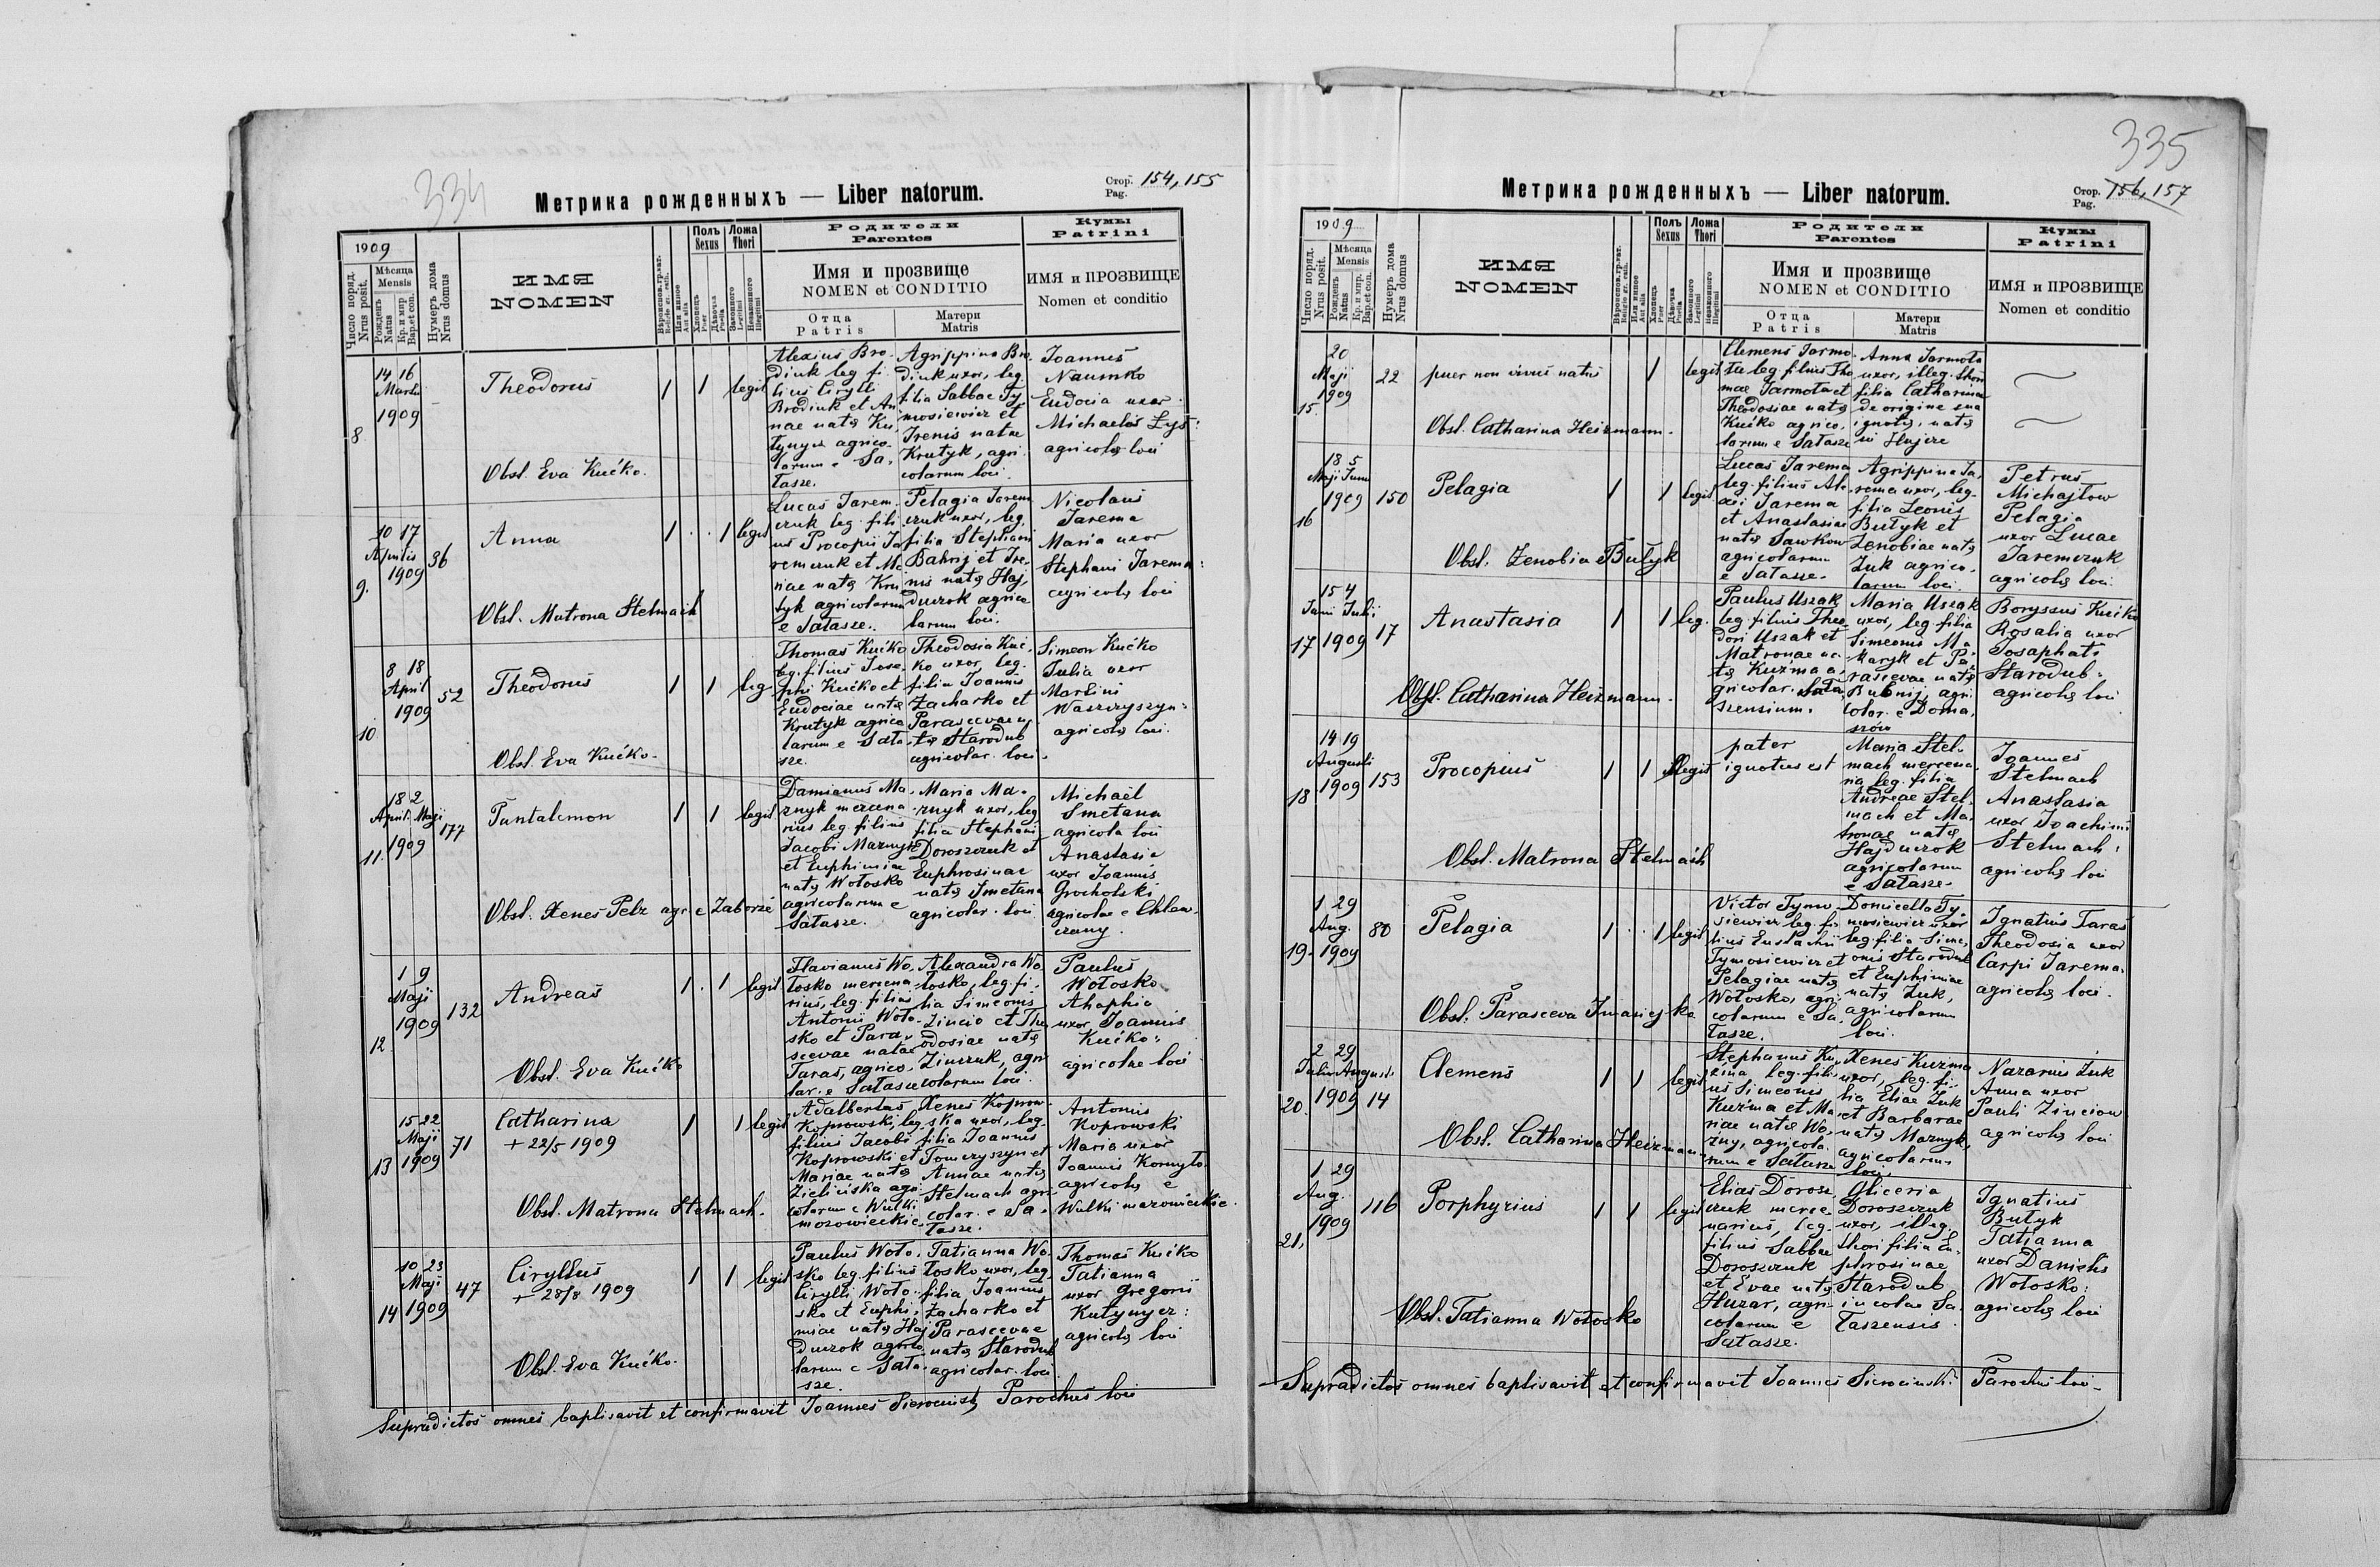 334
Метрика рожденныхъ — Liber natorum.
Стор. 154, 155
Pag.
1909
Число поряд.
Nrus posit.
Мѣсяца
Mensis
Рожденъ
Natus
Кр. и мир
Bap. et con.
Нумеръ дома
Nrus domus
ИМЯ
NOMEN
Полъ
Sexus
Ложа
Thori
Хлопецъ
Puer
Дѣвочка
Puella
Законного
Legitimi
Незаконного
Illegitimi
Родители
Parentes
Имя и прозвище
NOMEN et CONDITIO
Отца
Patris
Матери
Matris
Кумы
Patrini
ИМЯ и ПРОЗВИЩЕ
Nomen et conditio
8
14 16
Martii
1909
Theodorus
Obst. Eva Kućko.
1
1
legit
Alexius Bro-
diuk leg. fi-
lius Cirylli
Brodiuk et An-
nae natę Ku-
tynycz agrico-
larum e Sa-
łasze.
Agrippina Bro-
diuk uxor, leg.
filia Sabbae Ty-
mosiewicz et
Irenis natae
Krutyk, agri-
colarum loci.
Joannes
Naumko
Eudocia uxor
Michaelis Łyś:
agricolę loci
9.
10 17
Aprilis
1909
36
Anna
Obst. Matrona Stelmach
1
1
legit
Lucas Jarem-
czuk leg. fili-
us Procopii Ja-
remczuk et Ma-
riae natę Kru-
tyk agricolarum
e Sałasze.
Pelagia Jarem-
czuk uxor, leg.
filia Stephani
Bahrij et Ire-
nis natę Haj-
duczok agrico-
larum loci.
Nicolaus
Jarema
Maria uxor
Stephani Jarema:
agricolę loci
10
8 18
April
1909
52
Theodorus
Obst. Eva Kućko.
1
1
leg
Thomas Kućko
leg. filius Jose-
phi Kućko et
Eudociae natę
Krutyk agrico-
larum e Sała-
sze.
Theodosia Kuć-
ko uxor, leg.
filia Joannis
Zacharko et
Parascevae na-
tę Starodub
agricolar. loci.
Simeon Kućko
Julia uxor
Martini
Waszczyszyn:
agricolę loci.
11.
18 2
April. Maji
1909
177
Pantalemon
Obst. Xenes Pelz agr e Zaborze
1
1
legit
Damianus Ma-
znyk mercena-
rius leg. filius
Jacobi Maznyk
et Euphimiae
natę Wołosko
agricolarum e
Sałasze.
Maria Ma-
znyk uxor, leg.
filia Stephani
Doroszczuk et
Euphrosinae
natę Smetana
agricolar. loci
Michaël
Smetana
agricola loci
Anastasia
uxor Joannis
Grocholski
agricolae e Chlew-
czany.
12
1 9
Maji
1909
132
Andreas
Obst. Eva Kućko
1
1
legit
Flavianus Wo-
łosko mercena-
rius, leg. filius
Antonii Woło-
sko et Para-
scevae natae
Taras, agrico-
lar. e Sałasze
Alexandra Wo-
łosko, leg. fi-
lia Simeonis
Zincio et The-
odosiae natę
Zinczuk, agri-
colarum loci.
Paulus
Wołosko
Ahaphia
uxor Joannis
Kućko:
agricolae loci
13
15 22
Maji
1909
71
Catharina
+ 22/5 1909
Obst. Matrona Stelmach.
1
1
legit
Adalbertus
Koprowski, leg.
filius Jacobi
Koprowski et
Mariae natę
Zielińska agri-
colarum e Wulki
mazowieckie.
Xenes Koprow-
ska uxor, leg.
filia Joannis
Tomczyszyn et
Annae natę
Stelmach agri-
colar. e Sa-
łasze.
Antonius
Koprowski
Maria uxor
Joannis Kornyło
agricolę e
Wulki mazowieckie.
14
10 23
Maji
1909
47
Ciryllus
+ 28/8 1909
Obst. Eva Kućko.
1
1
legit
Paulus Woło-
sko leg. filius
Cirylli Woło-
sko et Euphi-
miae natę Haj-
duczok agrico-
larum e Sała-
sze.
Tatianna Wo-
łosko uxor, leg.
filia Joannis
Zacharko et
Parascevae
natę Starodub
agricolar. loci
Thomas Kućko
Tatianna
uxor Gregorii
Kutynycz:
agricolę loci
Supradictos omnes baptisavit et confirmavit Joannes Sierocinski Parochus loci
335
Метрика рожденныхъ — Liber natorum.
Стор. 156, 157
Pag.
1909
Число поряд.
Nrus posit.
Мѣсяца
Mensis
Рожденъ
Natus
Кр. и мир.
Bap. et con.
Нумеръ дома
Nrus domus
ИМЯ
NOMEN
Полъ
Sexus
Ложа
Thori
Хлопецъ
Puer
Дѣвочка
Puella
Законного
Legitimi
Незаконного
Illegitimi
Родители
Parentes
Имя и прозвище
NOMEN et CONDITIO
Отца
Patris
Матери
Matris
Кумы
Patrini
ИМЯ и ПРОЗВИЩЕ
Nomen et conditio
15.
20
Maji
1909
22
puer non vivus natus
Obst. Catharina Heizmann.
1
legit
Clemens Jarmo-
ta leg. filius Tho-
mae Jarmota et
Theodosiae natę
Kućko agrico-
larum e Sałasze
Anna Jarmota
uxor, illeg. thori
filia Catharinae
de origine sua
ignotę, natę
in Hujcze
16
18 5
Maji Juni
1909
150
Pelagia
Obst. Zenobia Butyk
1
1
legit
Lucas Jarema
leg. filius Ale-
xii Jarema
et Anastasiae
natę Sawkow
agricolarum
e Sałasze.
Agrippina Ja-
rema uxor, leg.
filia Leonis
Butyk et
Zenobiae natę
Żuk agrico-
larum loci.
Petrus
Michajlow
Pelagia
uxor Lucae
Jaremczuk
agricolę loci.
17
15 4
Juni Juli
1909
17
Anastasia
Obst. Catharina Heizmann.
1
1
leg.
Paulus Uszak
leg. filius Theo-
dori Uszak et
Matronae na-
tę Kuźma a-
gricolar. Sała-
szensium.
Maria Uszak
uxor, leg. filia
Simeonis Ma-
maryk et Pa-
rascevae natę
Bubnij, agri-
colar. e Doma-
szów
Boryssus Kućko
Rosalia uxor
Josaphati
Starodub:
agricolę loci
18
14 19
Augusti
1909
153
Procopius
Obst. Matrona Stelmach
1
1
illegit
pater
ignotus est
Maria Stel-
mach mercena-
ria leg. filia
Andreae Stel-
mach et Ma-
tronae natę
Hajduczok
agricolarum
e Sałasze.
Joannes
Stelmach
Anastasia
uxor Joachimi
Stelmach:
agricolę loci
19.
1 29
Aug.
1909
80
Pelagia
Obst. Parasceva Ivasiejko
1
1
legit
Victor Tymo-
siewicz leg. fi-
lius Eustachii
Tymosiewicz et
Pelagiae natę
Wołosko, agri-
colarum e Sa-
łasze.
Domicella Ty-
mosiewicz uxor
leg. filia Sime-
onis Starodub
et Euphimiae
natę Żuk,
agricolarum
loci.
Ignatius Taras
Theodosia uxor
Carpi Jarema:
agricolę loci.
20.
2 29
Julii Augusti
1909
14
Clemens
Obst. Catharina Heizmann
1
1
legit
Stephanus Ku-
źma leg. fili-
us Simeonis
Kuźma et Ma-
riae natę Wo-
źny, agricola-
rum e Sałasze
Xenes Kuźma
uxor, leg. fi-
lia Eliae Żuk
et Barbarae
natę Maznyk,
agricolarum
loci.
Nazarius Żuk
Anna uxor
Pauli Zinciow
agricolę loci
21.
1 29
Aug.
1909
116
Porphyrius
Obst. Tatianna Wołosko
1
1
legit
Elias Dorosz-
czuk merce-
narius, leg.
filius Sabbae
Doroszczuk
et Evae natę
Huzar, agri-
colarum e
Sałasze.
Gliceria
Doroszczuk
uxor, illeg.
thori filia Eu-
phrosinae
Starodub
incolae Sa-
łaszensis.
Ignatius
Butyk
Tatianna
uxor Danielis
Wołosko:
agricolę loci
Supradictos omnes baptisavit et confirmavit Joannes Sierocinski Parochus loci